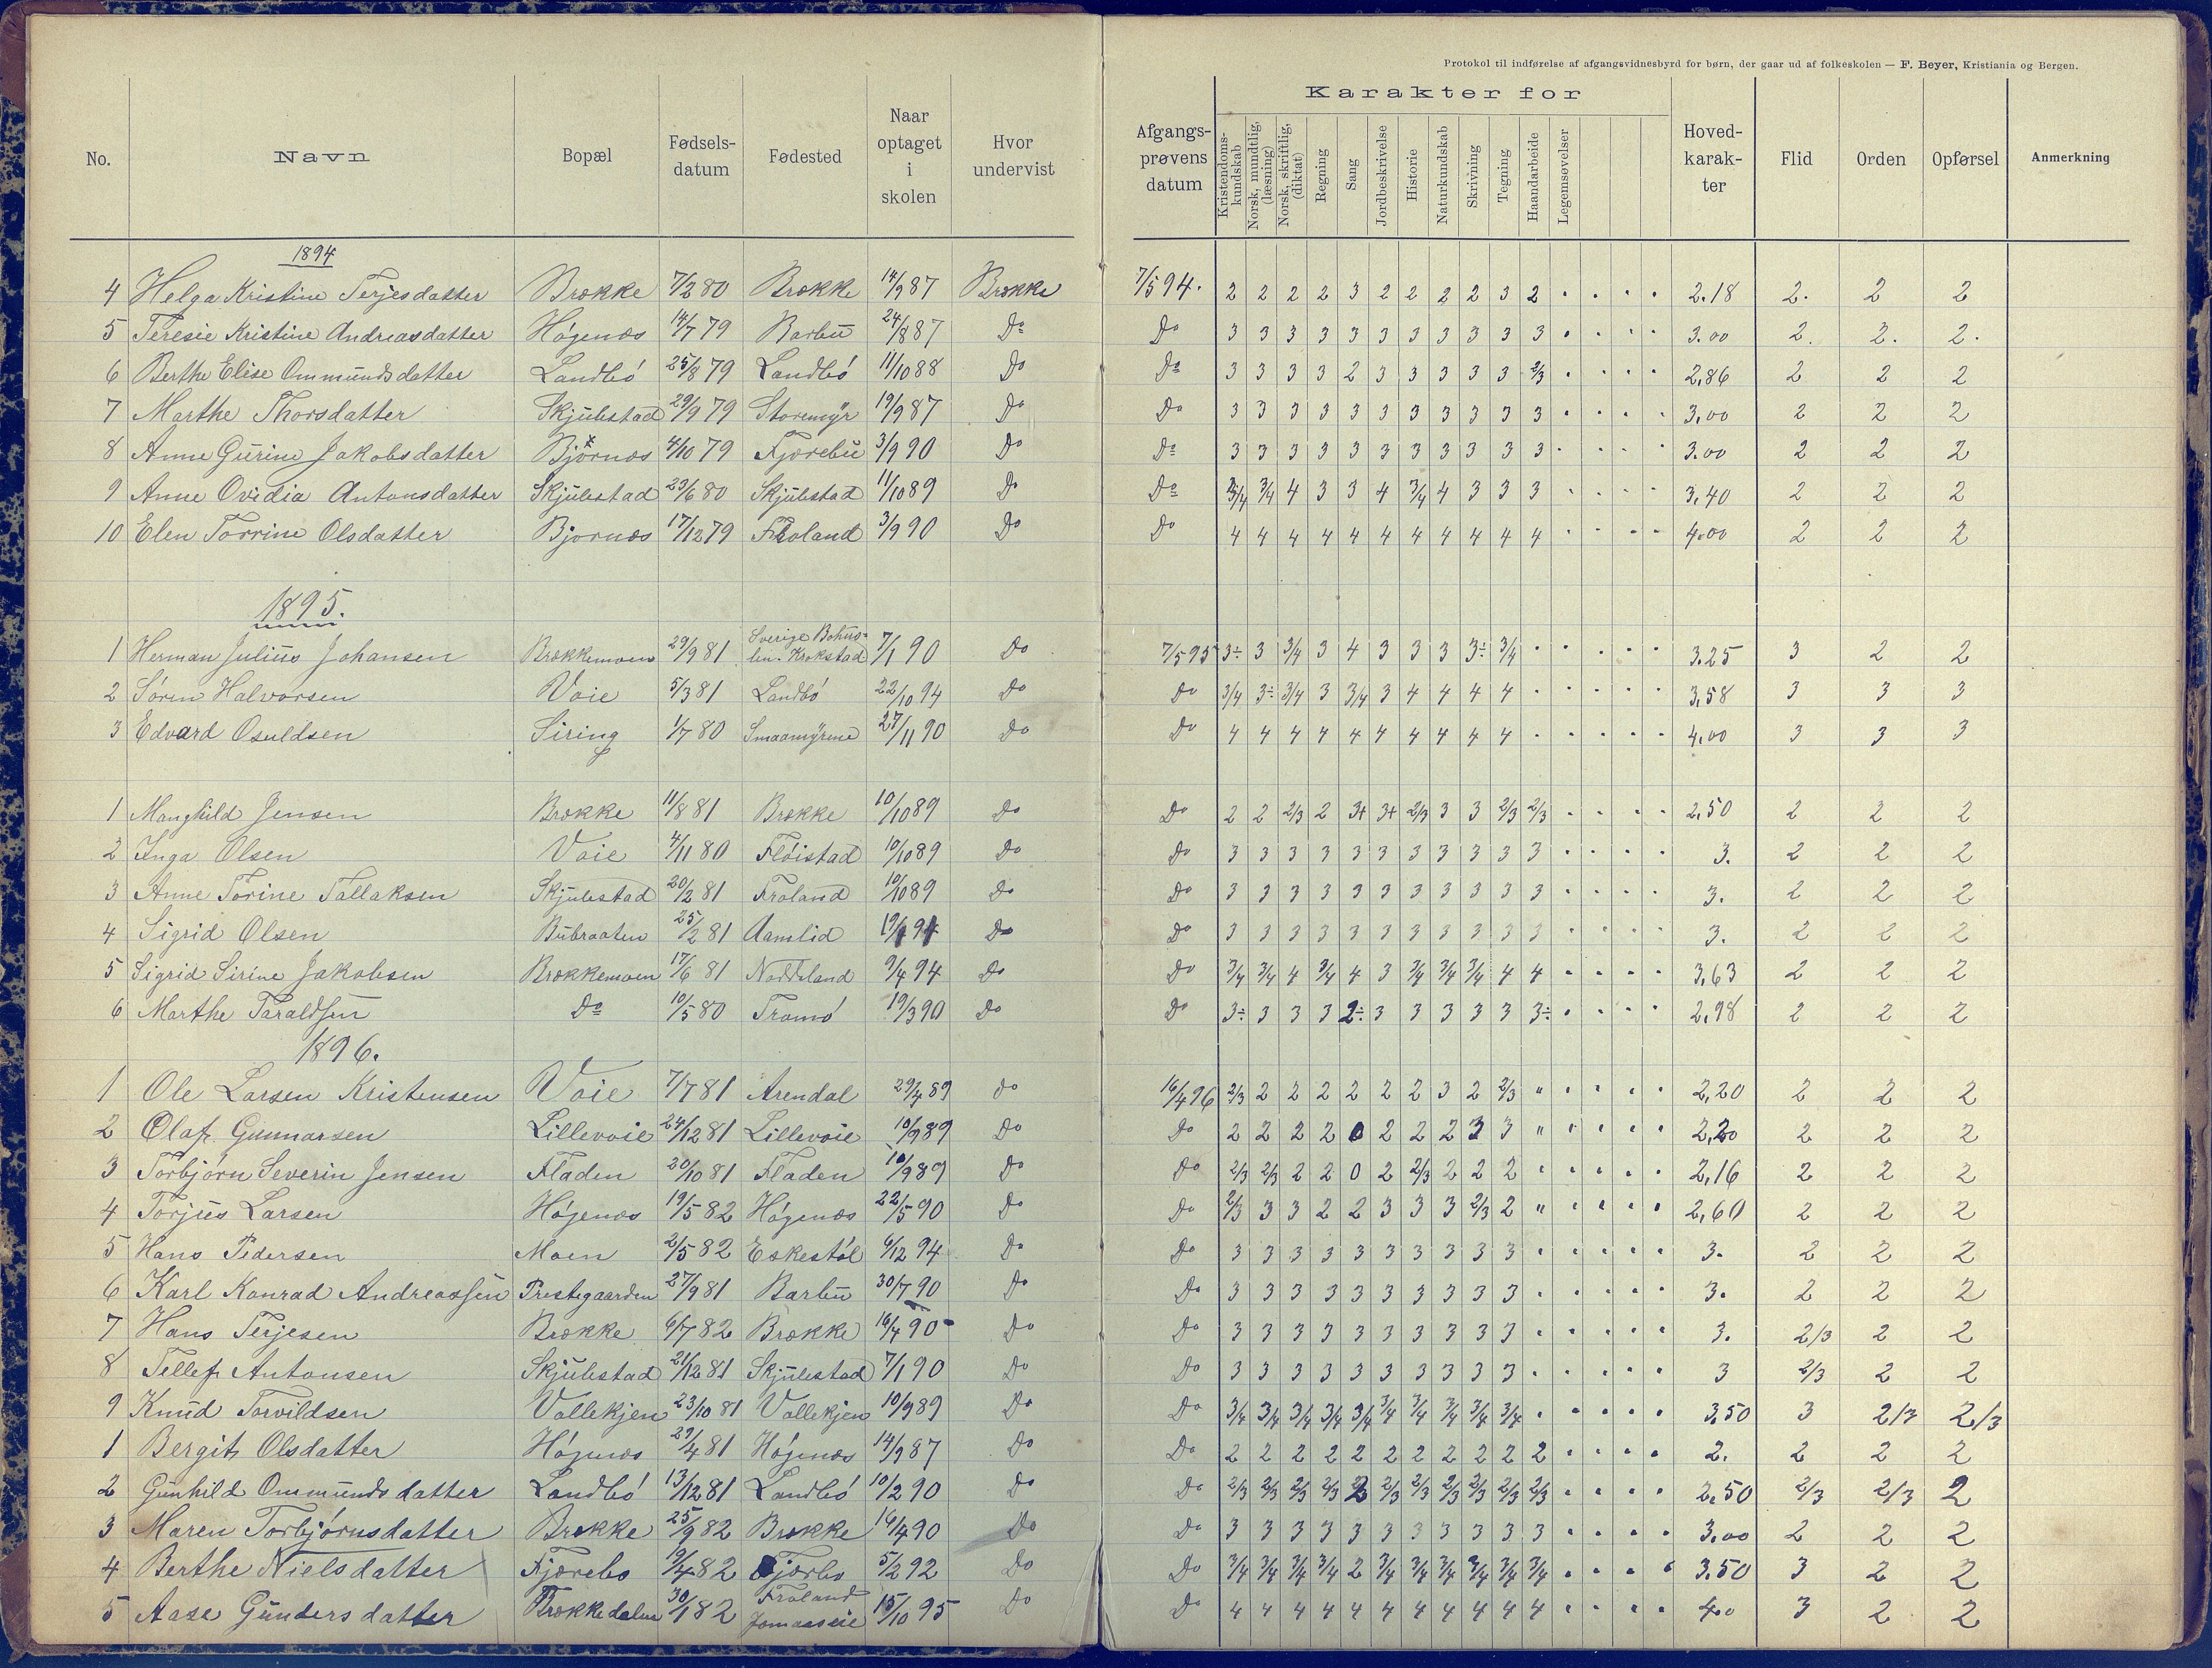 Protokol til indførelse af afgangsvidnesbyrd for børn, der gaar ud af folkeskolen — F. Beyer, Kristiania og Bergen.
Karakter for
No. Navn Bopæl Fødsels-datum Fødested Naar optaget i skolen Hvor undervist Afgangs-prøvens datum Kristendoms-kundskab Norsk, mundtlig, (læsning) Norsk, skriftlig, (diktat) Regning Sang Jordbeskrivelse Historie Naturkundskab Skrivning Tegning Haandarbeide Legemsøvelser Hoved-karak-ter Flid Orden Opførsel Anmerkning
1894
4 Helga Kristine Terjesdatter Brække 7/2 80 Brække 14/9 87 Brække 7/5 94. 2 2 2 2 3 2 2 2 2 3 2 . . . . 2.18 2. 2 2
5 Teresie Kristine Andreasdatter Høgenæs 14/7 79 Barbu 24/8 87 Do Do 3 3 3 3 3 3 3 3 3 3 3 . . . . 3.00 2. 2. 2.
6 Berthe Elise Ommundsdatter Landbø 25/8 79 Landbø 11/10 88 Do Do 3 3 3 3 2 3 3 3 3 3 2/3 . . . . 2,86 2 2 2
7 Marthe Thorsdatter Skjulestad 29/9 79 Storemyr 19/9 87 Do Do 3 3 3 3 3 3 3 3 3 3 3 . . . . 3,00 2 2 2
8 Anne Gurine Jakobsdatter Bjørnæs 4/10 79 Fjærebu 3/9 90 Do Do 3 3 3 3 3 3 3 3 3 3 3 . . . . 3.00 2 2 2
9 Anne Ovidia Antonsdatter Skjulestad 23/6 80 Skjulestad 11/10 89 Do Do 3/4 3/4 4 3 3 4 3/4 4 3 3 3 . . . . 3,40 2 2 2
10 Elen Torrine Olsdatter Bjornæs 17/12 79 Froland 3/9 90 Do Do 4 4 4 4 4 4 4 4 4 4 4 . . . . 4.00 2 2 2
1895.
1 Herman Julius Johansen Brækkemoen 29/9 81 Sverige Bohus-len. Krokstad 7/1 90 Do 7/5 95 3÷ 3 3/4 3 4 3 3 3 3÷ 3/4 . . . . . 3.25 3 2 2
2 Søren Halvorsen Voie 5/3 81 Landbø 22/10 94 Do Do 3/4 3÷ 3/4 3 3/4 3 4 4 4 4 . . . . . 3,58 3 3 3
3 Edvard Osuldsen Siring 1/7 80 Smaamyrene 27/11 90 Do Do 4 4 4 4 4 4 4 4 4 4 . . . . . 4,00 3 3 3
1 Manghild Jensen Brække 11/8 81 Brække 10/10 89 Do Do 2 2 2/3 2 3+ 3+ 2/3 3 3 2/3 2/3 . . . . 2,50 2 2 2
2 Inga Olsen Voie 4/11 80 Fløistad 10/10 89 Do Do 3 3 3 3 3 3 3 3 3 3 3 . . . . 3. 2 2 2
3 Anne Torine Tallaksen Skjulestad 20/2 81 Froland 10/10 89 Do Do 3 3 3 3 3 3 3 3 3 3 3 . . . . 3. 2 2 2
4 Sigrid Olsen Bubraaten 25/2 81 Aamlid Do Do 3 3 3 3 3 3 3 3 3 3 3 . . . . 3. 2 2 2
5 Sigrid Sirine Jakobsen Brækkemoen 17/6 81 Noddeland 9/4 94 Do Do 3/4 3/4 4 3/4 4 3 3/4 3/4 3/4 4 4 . . . . 3,63 2 2 2
6 Marthe Taraldsen Do 10/5 80 Tromø 19/3 90 Do Do 3÷ 3 3 3 2÷ 3 3 3 3 3 3÷ . . . . 2,98 2 2 2
1896.
1 Ole Larsen Kristensen Voie 7/7 81 Arendal 29/4 89 Do 16/4 96 2/3 2 2 2 2 2 2 3 2 2/3 " . . . . 2,20 2 2 2
2 Olaf Gunnarsen Lillevoie 24/12 81 Lillevoie 10/9 89 Do Do 2 2 2 2 0 2 2 2 3 3 " . . . . 2,20 2 2 2
3 Torbjørn Severin Jensen Fladen 20/10 81 Fladen 10/9 89 Do Do 2/3 2/3 2 2 0 2 2/3 2 2 2 . . . . . 2,16 2 2 2
4 Torjus Larsen Høgenæs 19/5 82 Høgenæs 22/5 90 Do Do 2/3 3 3 2 2 3 3 3 2/3 2 " . . . . 2,60 2 2 2
5 Hans Pedersen Moen 2/5 82 Eskestøl 6/12 94 Do Do 3 3 3 3 3 3 3 3 3 3 . . . . . 3. 2 2 2
6 Karl Konrad Andreassen Prestegaarden 27/9 81 Barbu 30/7 90 Do Do 3 3 3 3 3 3 3 3 3 3 . . . . . 3. 2 2 2
7 Hans Terjesen Brække 6/7 82 Brække 16/4 90 Do Do 3 3 3 3 3 3 3 3 3 3 . . . . . 3. 2/3 2 2
8 Tellef Antonsen Skjulestad 21/12 81 Skjulestad 7/1 90 Do Do 3 3 3 3 3 3 3 3 3 3 . . . . . 3 2/3 2 2
9 Knud Torvildsen Vallekjen 23/10 81 Vallekjen 10/9 89 Do Do 3/4 3/4 3/4 3/4 3/4 3/4 3/4 3/4 3/4 3/4 . . . . . 3,50 3 2/3 2/3
1 Bergit Olsdatter Høgenæs 29/4 81 Høgenæs 14/9 87 Do Do 2 2 2 2 2 2 2 2 2 2 2 . . . . 2. 2 2 2
2 Gunhild Ommundsdatter Landbø 13/12 81 Landbø 10/2 90 Do Do 2/3 2/3 2/3 2/3 2 2/3 2/3 2/3 2/3 2/3 2/3 . . . . 2,50 2/3 2/3 2
3 Maren Torbjørnsdatter Brække 25/9 82 Brække 16/4 90 Do Do 3 3 3 3 3 3 3 3 3 3 3 . . . . 3,00 2 2 2
4 Berthe Nielsdatter Fjærebo 19/4 82 Fjærbo 5/2 92 Do Do 3/4 3/4 3/4 3/4 2 3/4 3/4 3/4 3/4 3/4 3/4 . . . . 3,50 3 2 2
5 Aase Gundersdatter Brækkedalen 30/1 82 Froland Jomaaseie 15/10 95 Do Do 4 4 4 4 4 4 4 4 4 4 4 . . . . 4.0 3 2 2